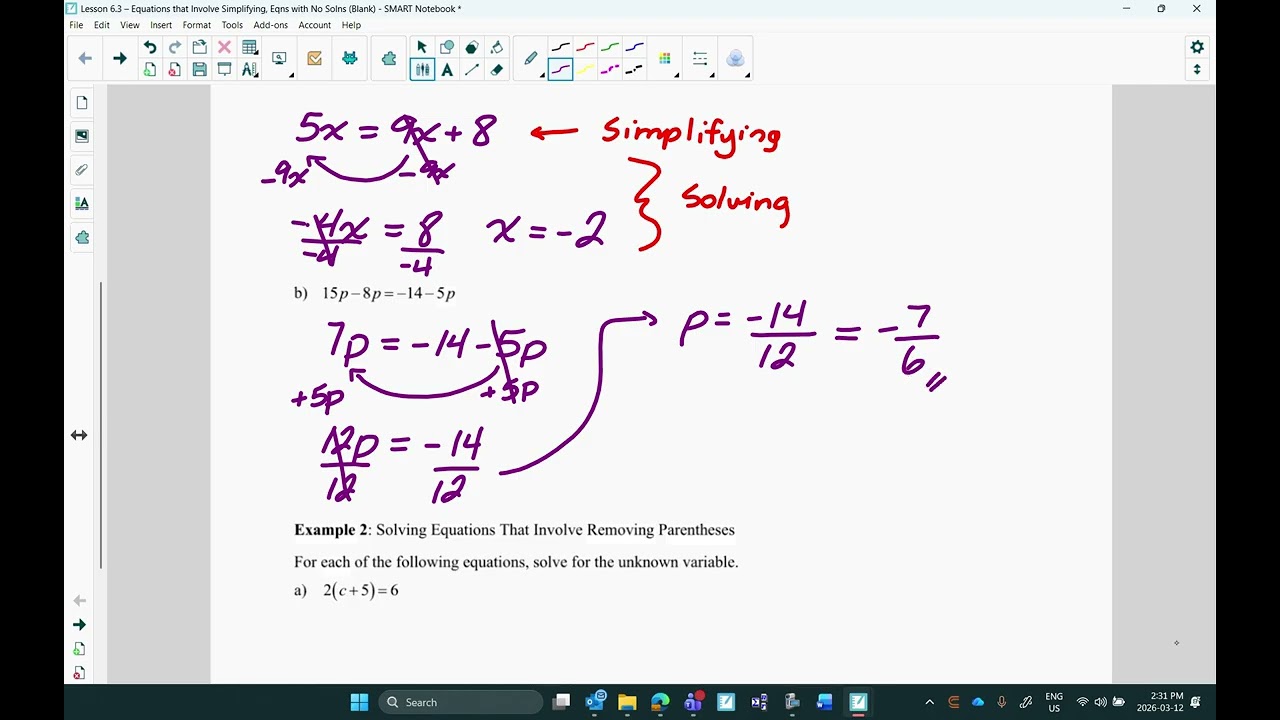 Lesson 6.3 – Equations that Involve Simplifying, Eqns with No Solns (Blank) - SMART Notebook *
File Edit View Insert Format Tools Add-ons Account Help
5x = 9x + 8 ← Simplifying
-9x -9x
Solving
-4x = 8 x = -2
-4 -4
b) 15p – 8p = –14 – 5p
7p = -14 - 5p
+5p +5p
12p = -14
12 12
p = -14/12 = -7/6
Example 2: Solving Equations That Involve Removing Parentheses
For each of the following equations, solve for the unknown variable.
a) 2(c+5) = 6
Search
ENG
US
2:31 PM
2026-03-12